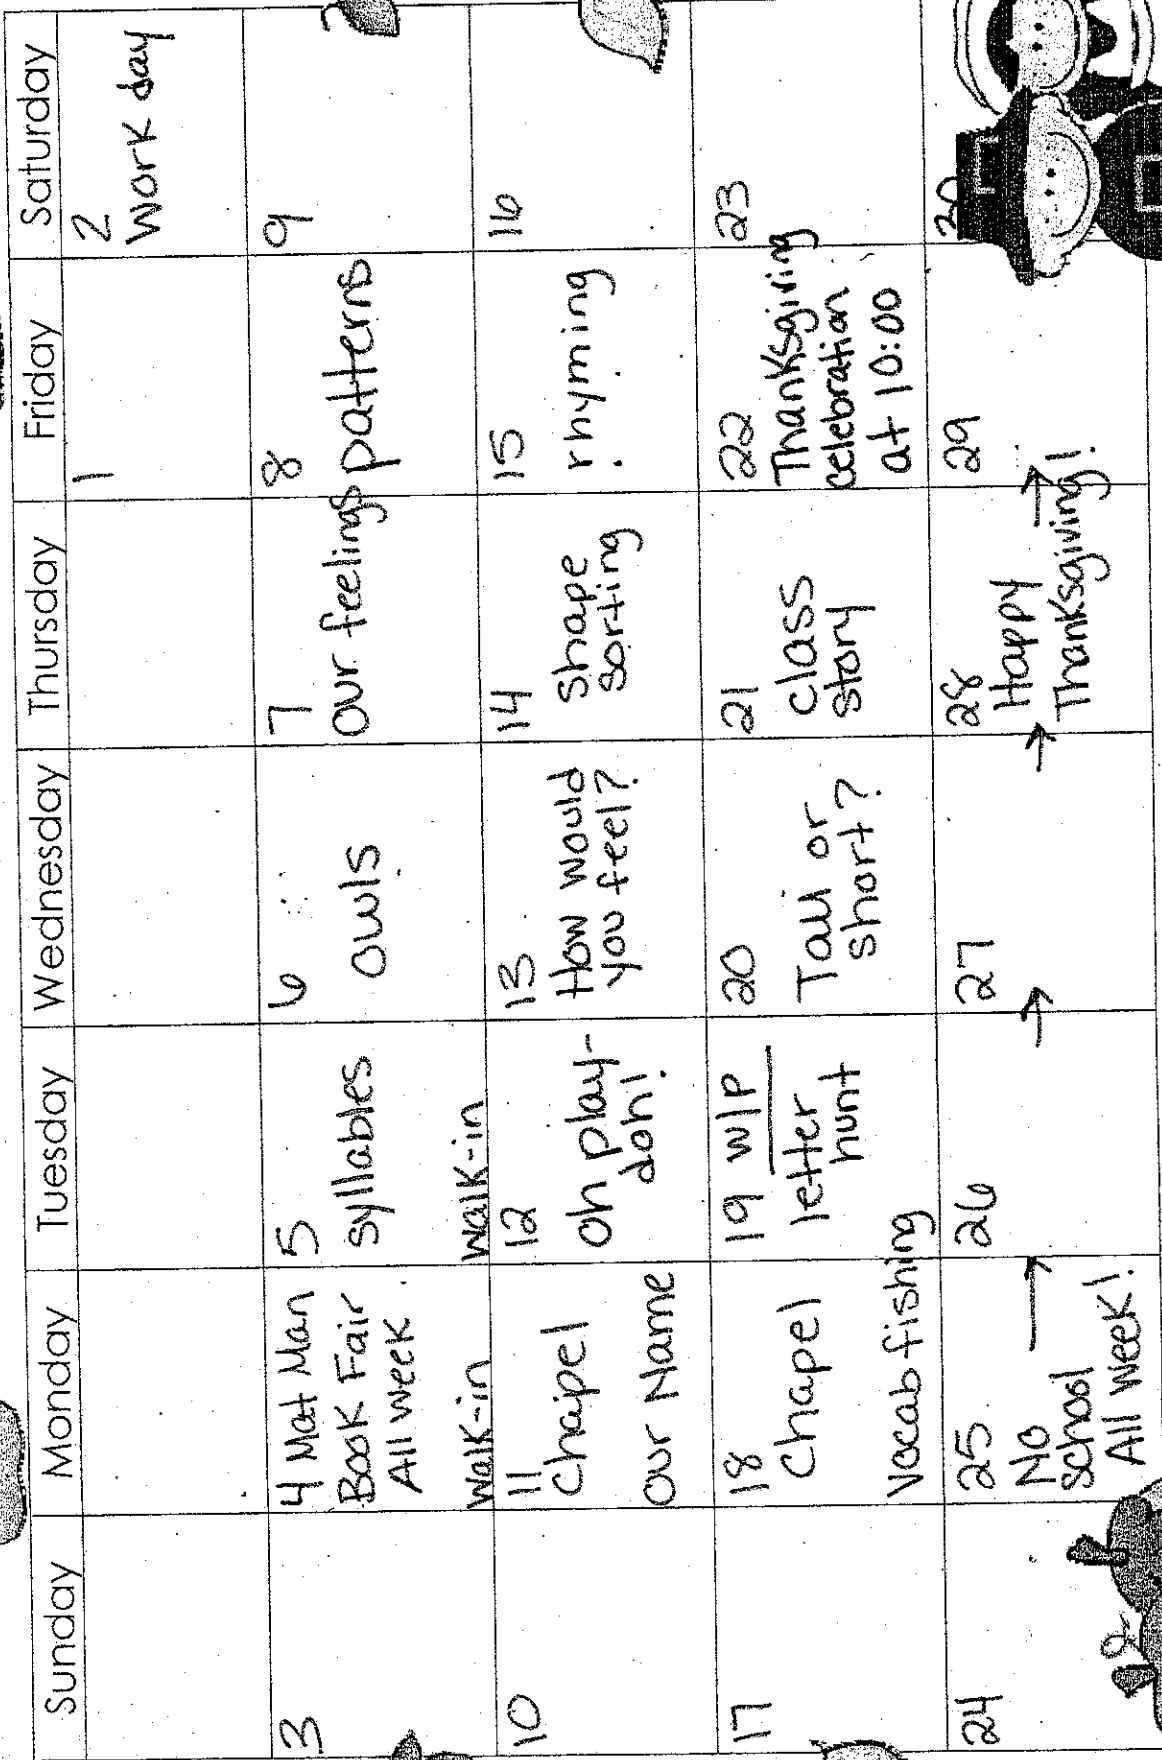 Sunday Monday Tuesday Wednesday Thursday Friday Saturday
1
2
Work day
3
4 Mat Man
Book Fair
All week
Walk-in
5
syllables
Walk-in
6
owls
7
our feelings
8
patterns
9
10
11
Chapel
Our Name
12
Oh play-
doh!
13
How would
you feel?
14
shape
sorting
15
rhyming
16
17
18
Chapel
Vocab fishing
19 w/p
letter
hunt
20
Tall or
short?
21
class
story
22
Thanksgiving
celebration
at 10:00
23
24
25
No
school
All week!
→
26
→
27
→
28
Happy
Thanksgiving!
→
29
30